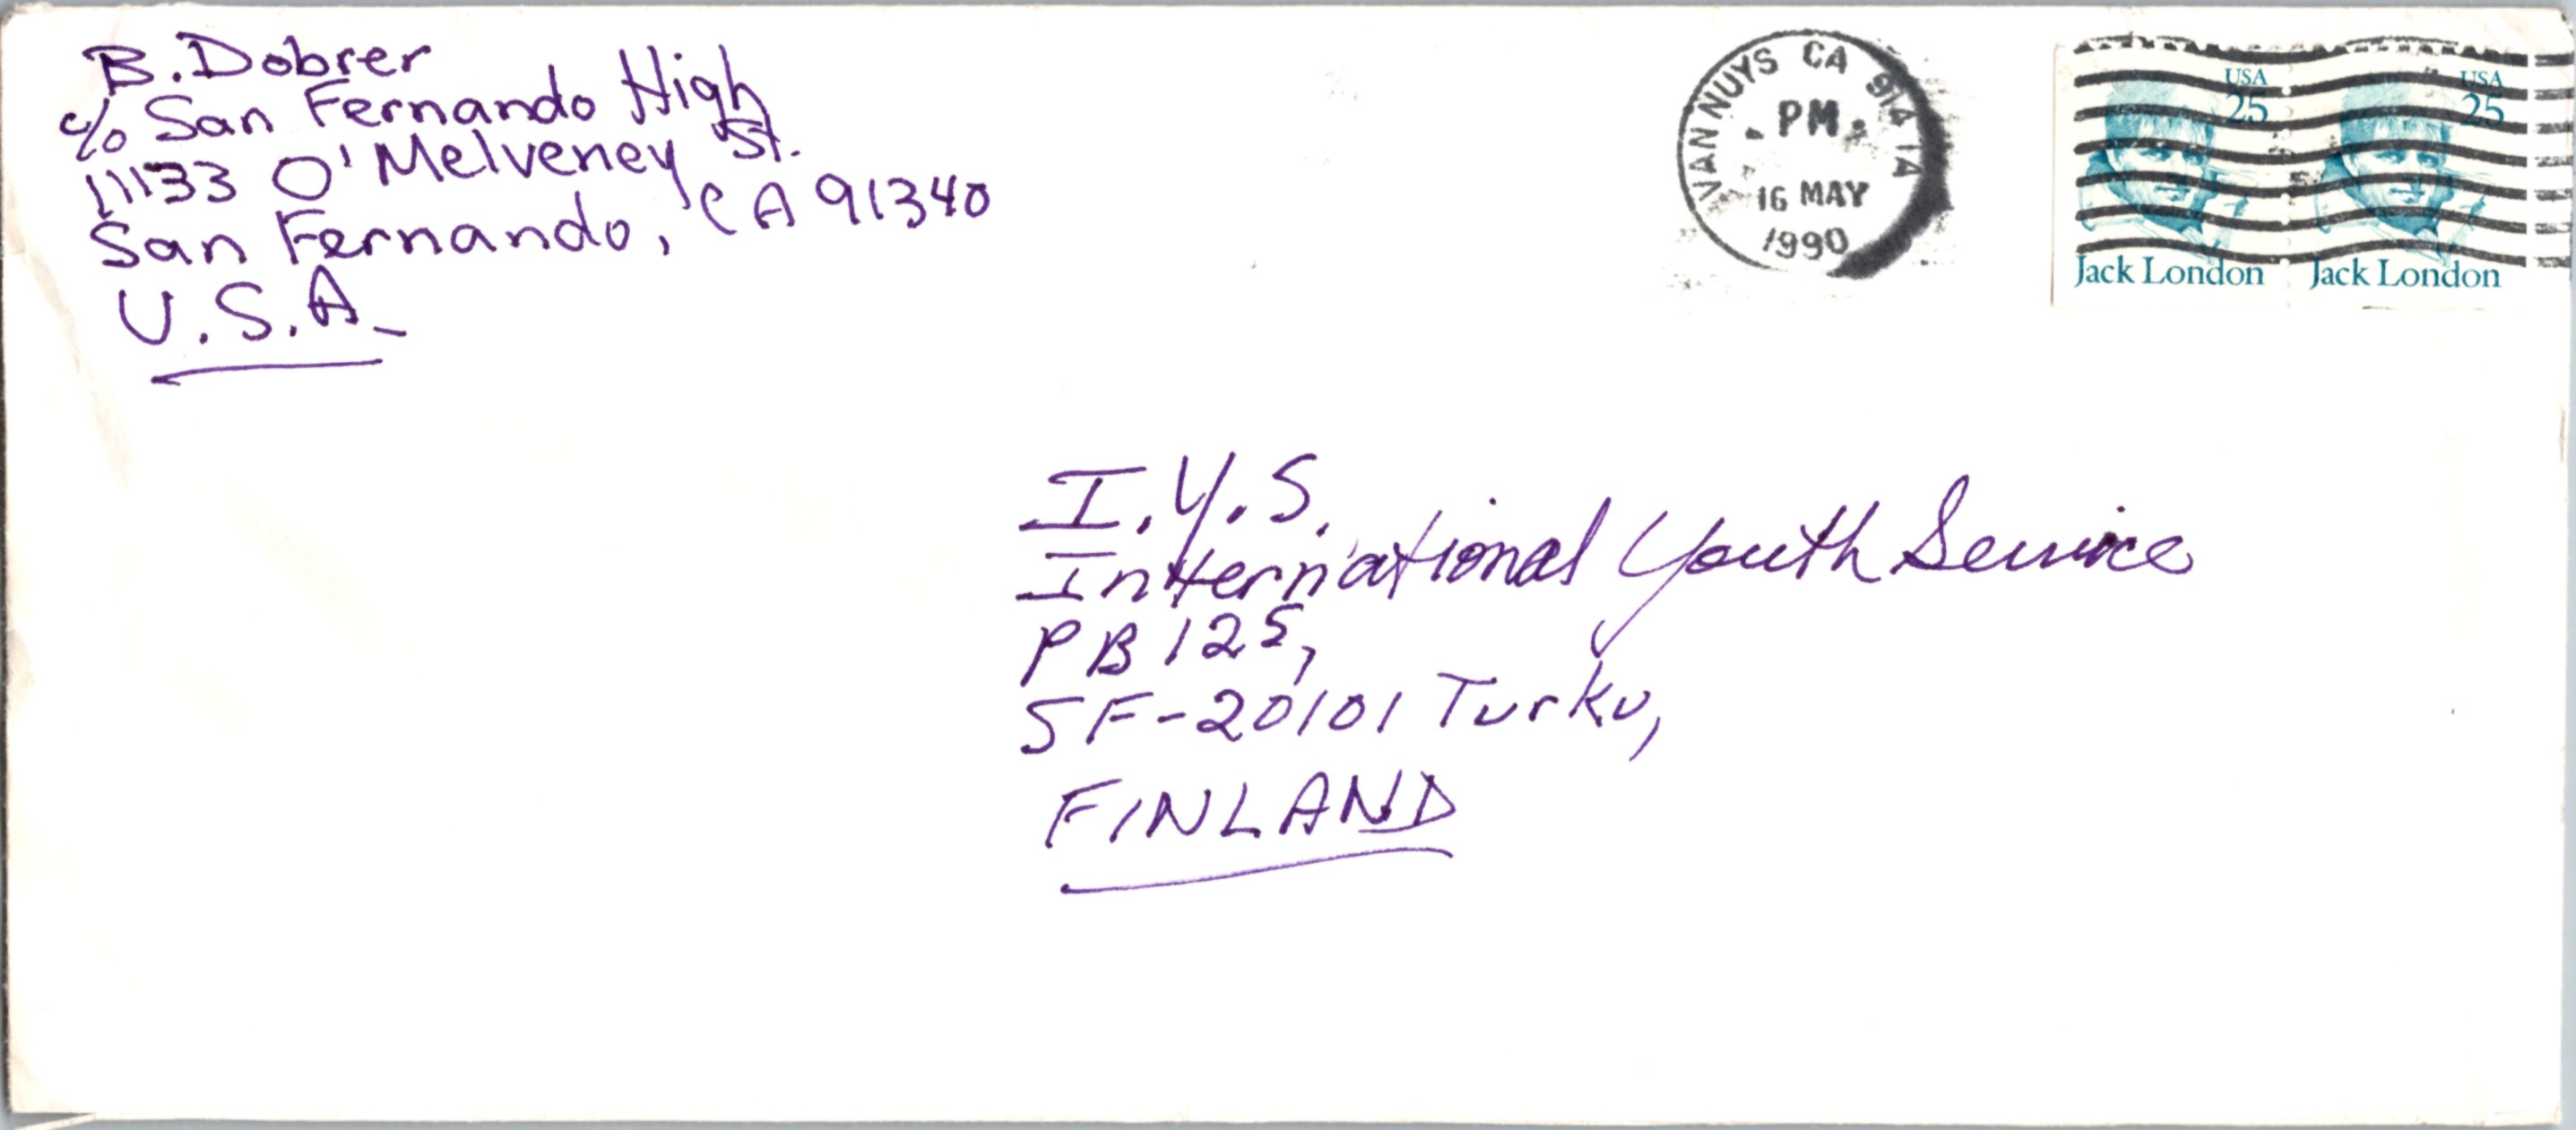 B. Dobrer
c/o San Fernando High
11133 O'Melveney St.
San Fernando, CA 91340
U.S.A.
VAN NUYS CA 914 1A
PM
16 MAY
1990
USA
25
Jack London
USA
25
Jack London
I.Y.S.
International Youth Service
PB 125,
SF-20101 Turku,
FINLAND